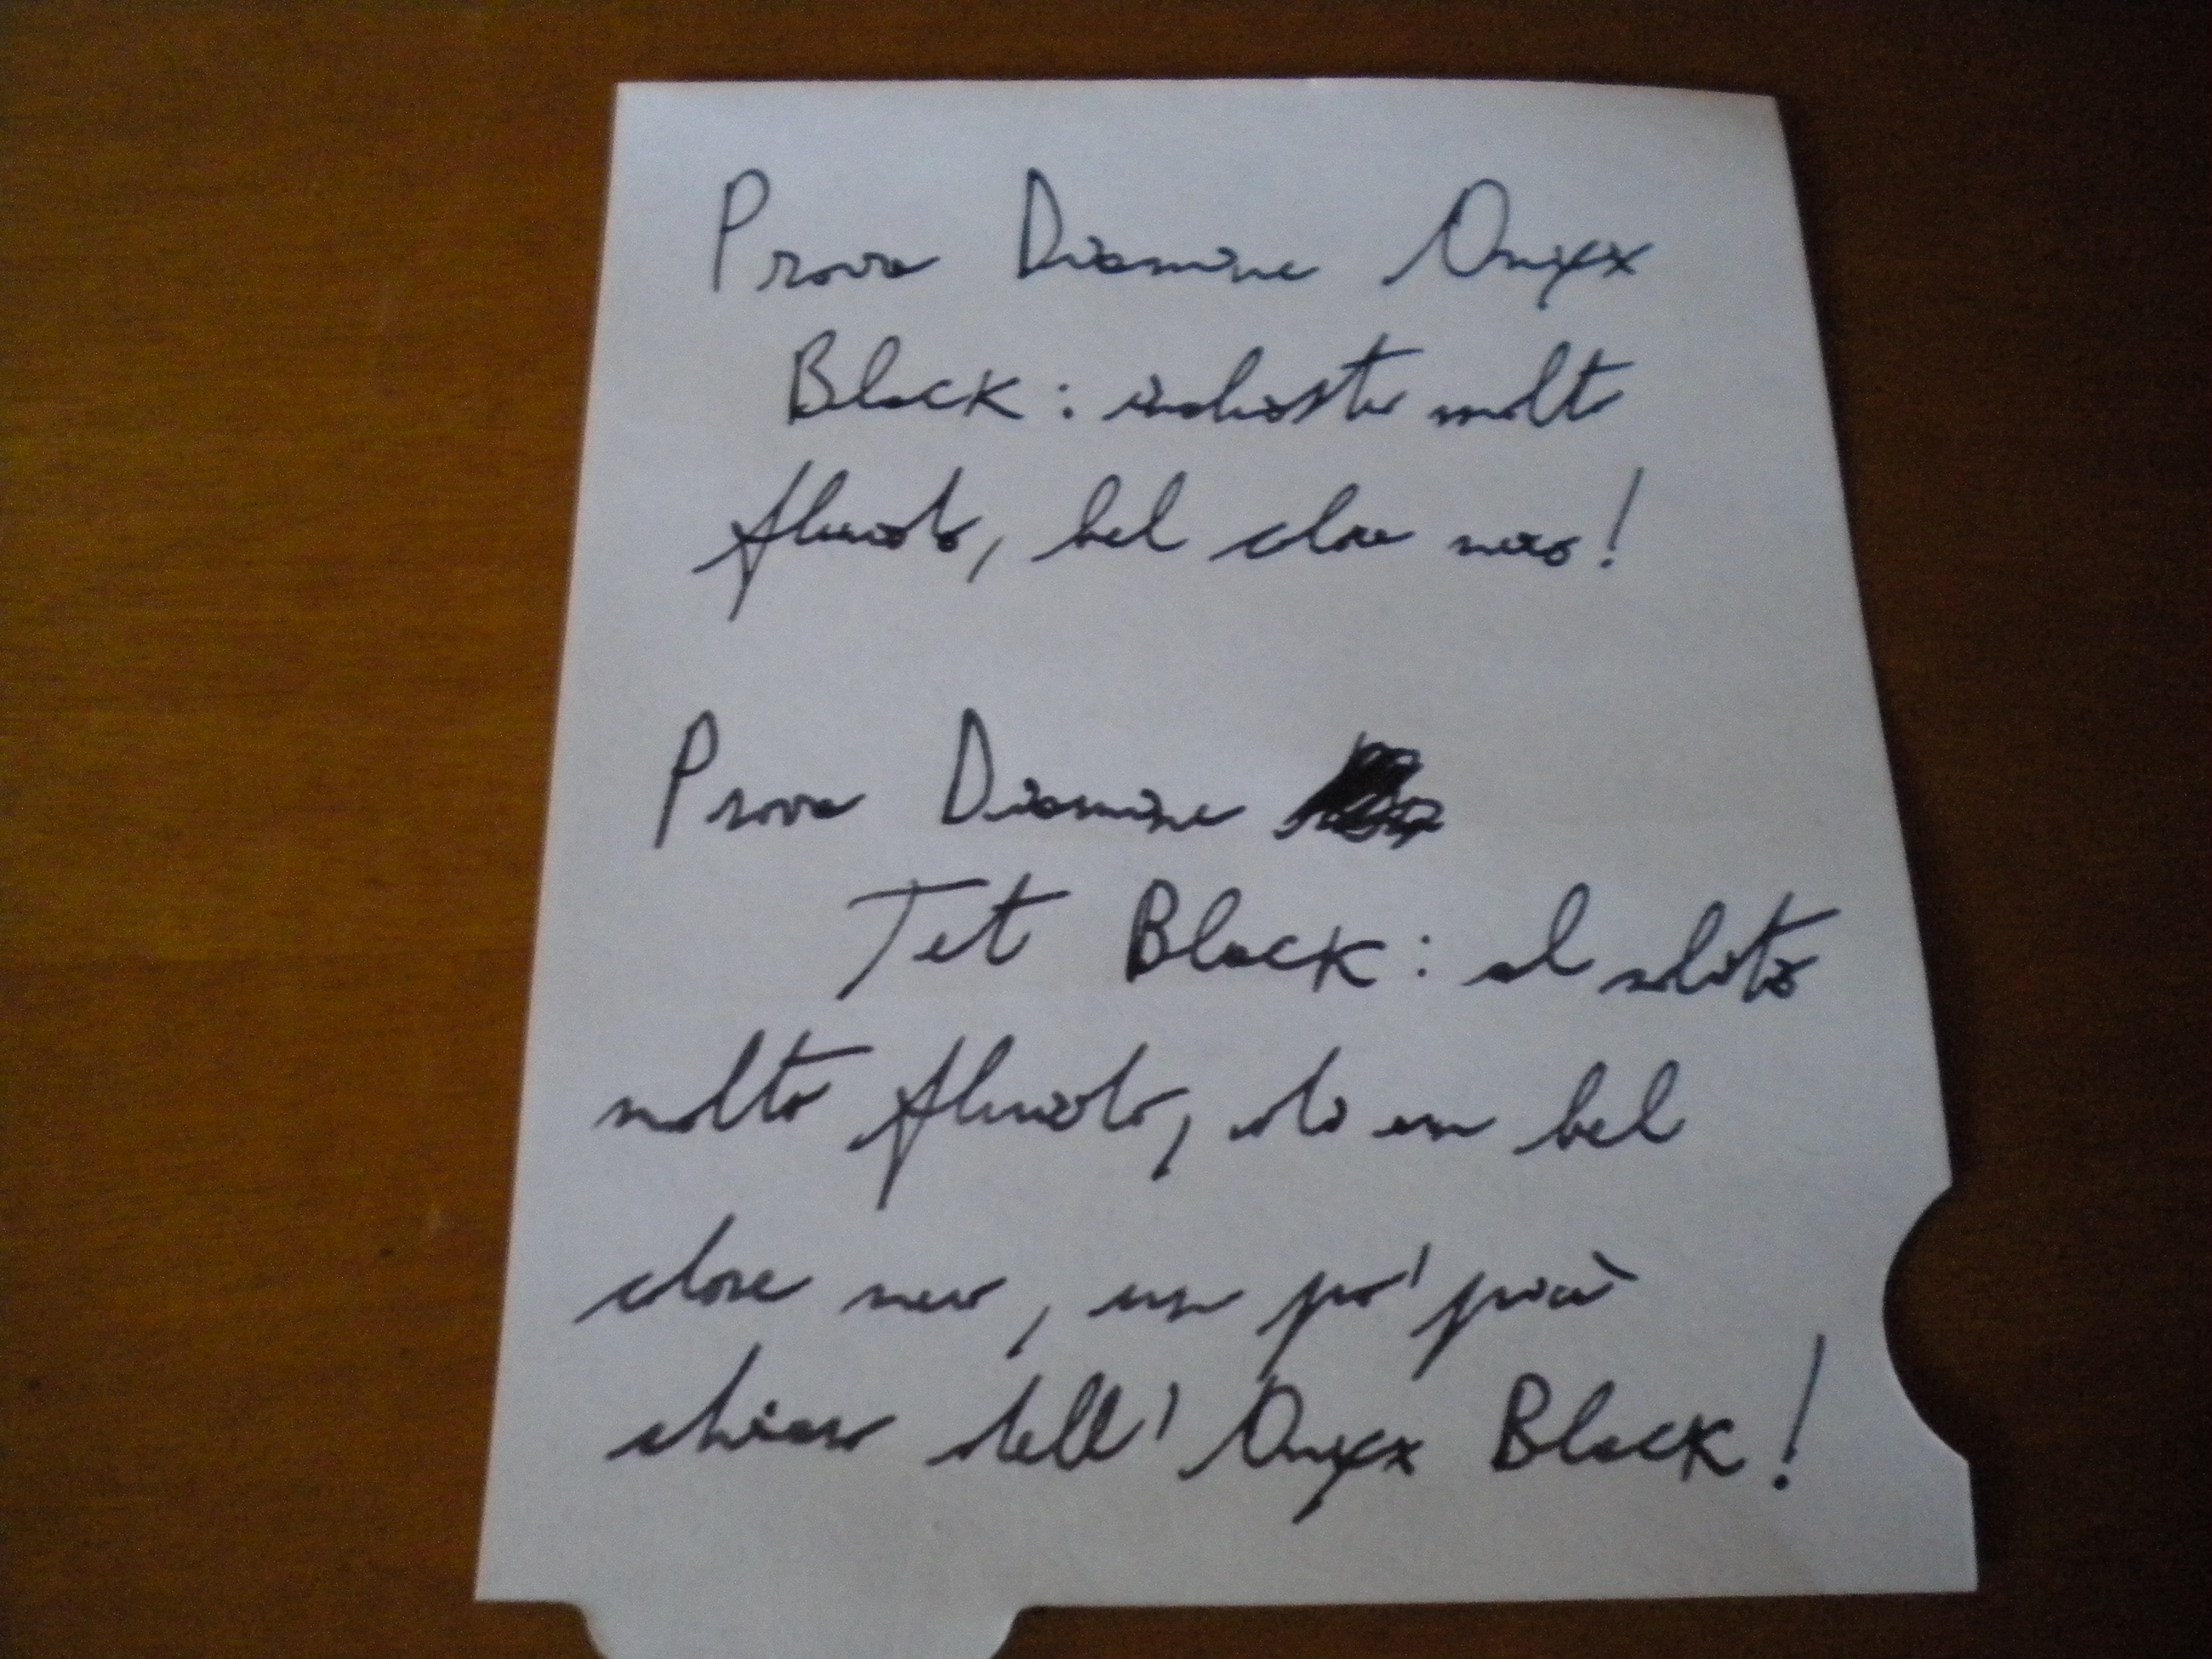 Prova Diamine Onyx
Black: inchiostro molto
fluido, bel colore nero!
Prova Diamine
Jet Black: al solito
molto fluido, dà un bel
colore nero, un po' più
chiaro dell' Onyx Black!